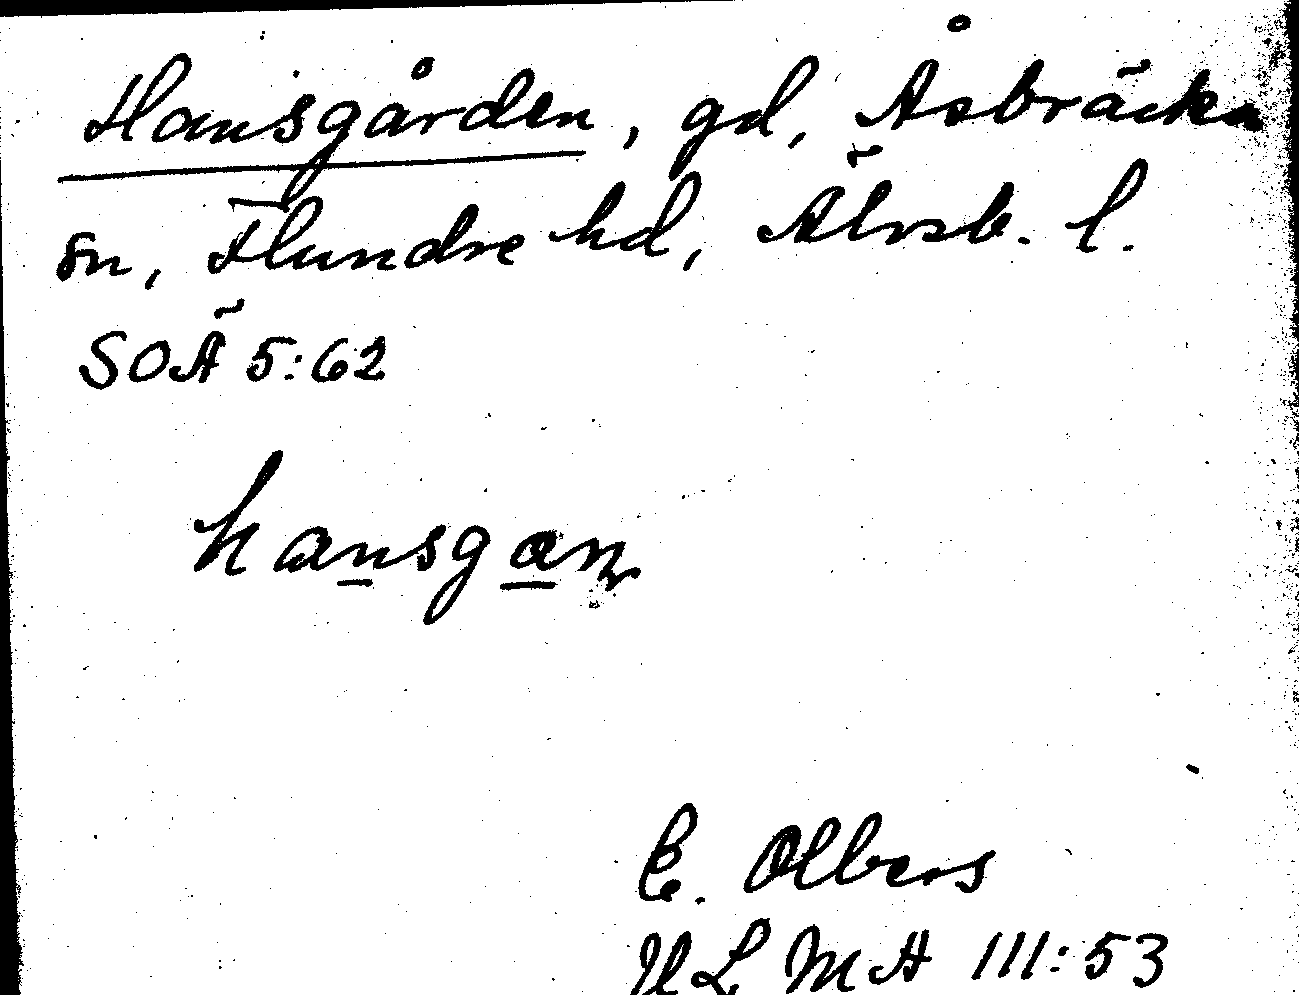 Hansgården, gd, Åsbräcka
sn, Flundre hd, Älvsb. l.
SOÄ 5:62
hansgan
E. Olbers
ULMA 111:53